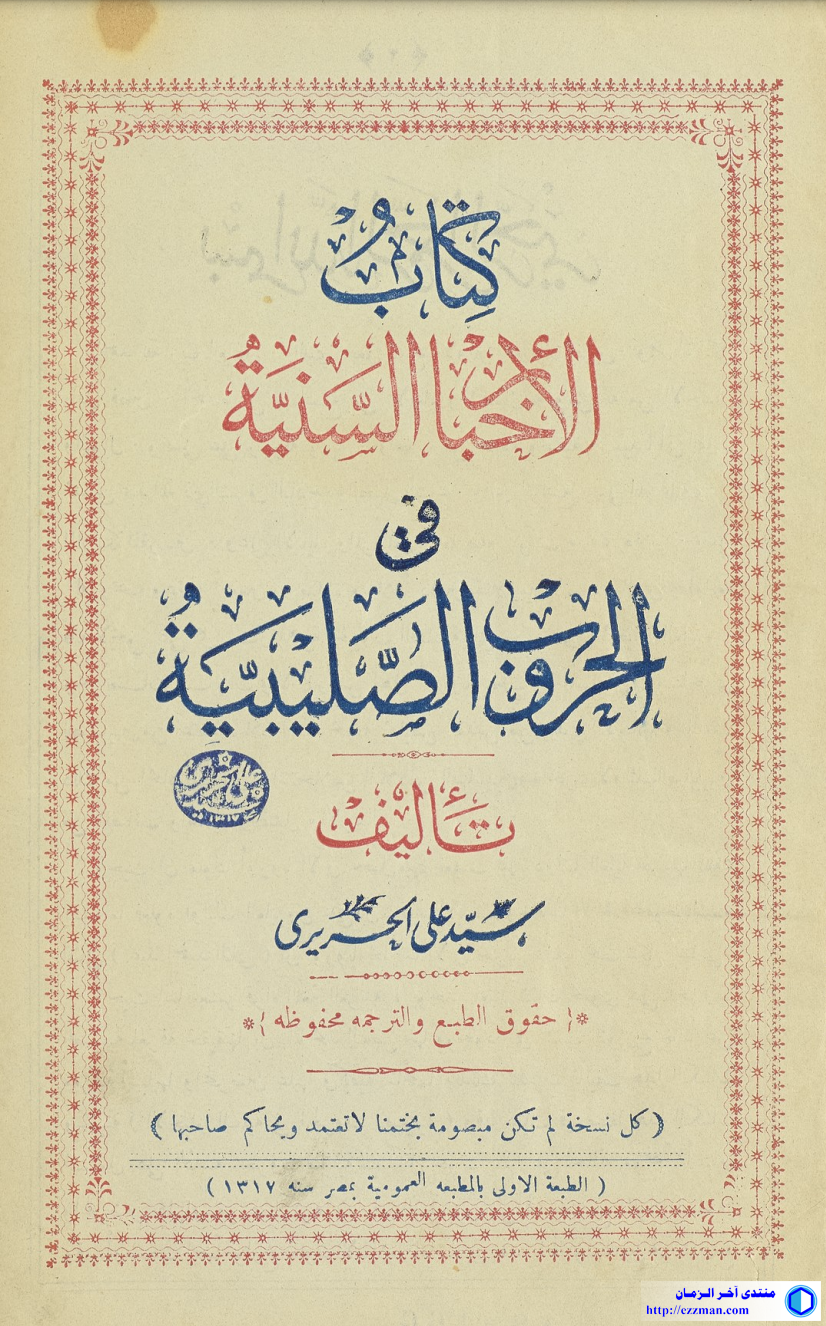 كِتَابُ
الأخبار السَّنِيَّةُ
في
الحروب الصَّلِيبِيَّةُ
تأليف
سيّد علي الحريرى
﴿ حقوق الطبع والترجمه محفوظه ﴾
(كل نسخة لم تكن مبصومة بختمنا لاتعتمد ويحاكم صاحبها)
( الطبعة الاولى بالمطبعه العمومية بمصر سنه ١٣١٧ )
منتدى آخر الزمان
http://ezzman.com